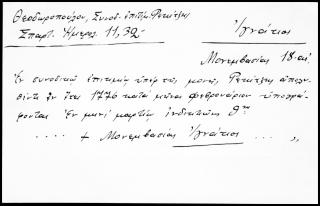 Θεοδωροπούλου, Συνοδ. ἐπιτίμ. Ρεκίτζης
Σπαρτ. Ἡμερολ. 11,32-
Ἰγνάτιος
Μονεμβασίας 18 αἰ.
Ἐν συνοδικῷ ἐπιτιμίῳ ὑπὲρ τῆς μονῆς Ρεκίτζης ἀπολυ-
θέντι ἐν ἔτει 1776 κατὰ μῆνα φεβρουάριον ὑπογρά-
φονται Ἐν μηνὶ μαρτίῳ ἰνδικτιῶνος 9ης
.... + Μονεμβασίας Ἰγνάτιος .... "